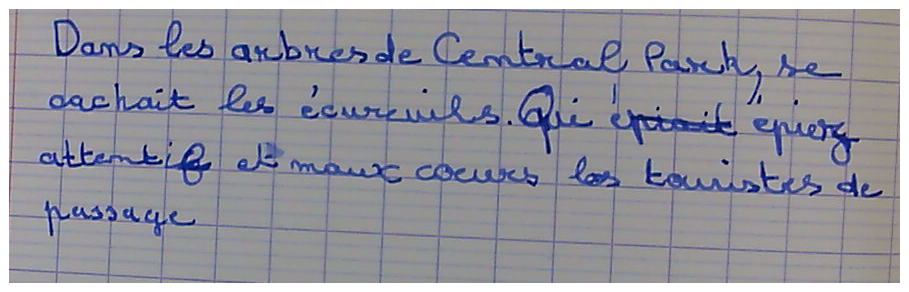 Dans les arbres de Central Park, se
cachait les écureuils. Qui épiait épierz
attentif et maux coeurs les touristes de
passage